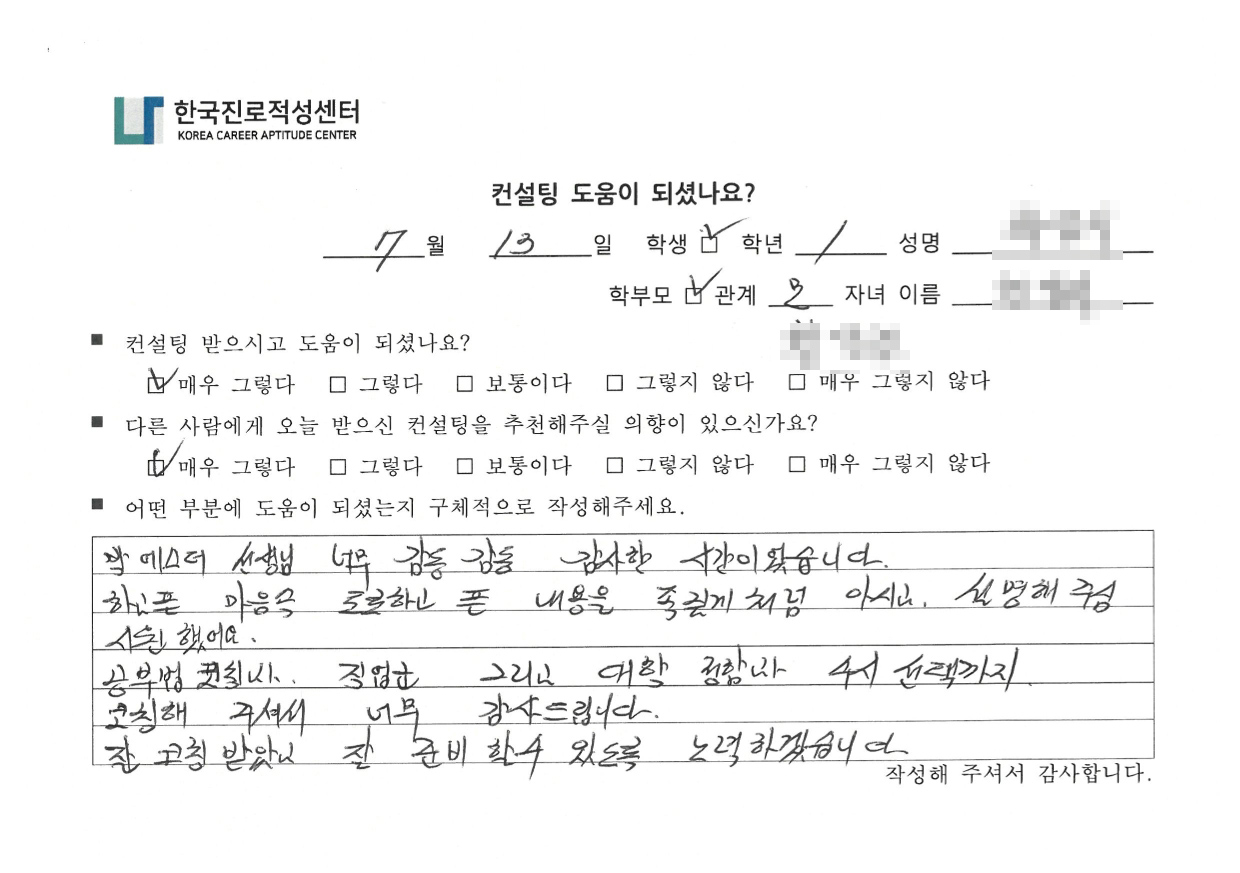 한국진로적성센터
KOREA CAREER APTITUDE CENTER
컨설팅 도움이 되셨나요?
7 월 13 일 학생 ☑ 학년 1 성명
학부모 ☑ 관계 모 자녀 이름
■ 컨설팅 받으시고 도움이 되셨나요?
☑ 매우 그렇다 □ 그렇다 □ 보통이다 □ 그렇지 않다 □ 매우 그렇지 않다
■ 다른 사람에게 오늘 받으신 컨설팅을 추천해주실 의향이 있으신가요?
☑ 매우 그렇다 □ 그렇다 □ 보통이다 □ 그렇지 않다 □ 매우 그렇지 않다
■ 어떤 부분에 도움이 되셨는지 구체적으로 작성해주세요.
박 에스더 선생님 너무 감동 감동 감사한 시간이였습니다.
하고픈 마음속 토로하고 픈 내용을 족집게처럼 아시고, 설명해 주심
시원했어요.
공부법 직업군 그리고 대학 4서 선택까지
코칭해 주셔서 너무 감사드립니다.
잘 코칭 받았으니 잘 준비 할수 있도록 노력하겠습니다
작성해 주셔서 감사합니다.